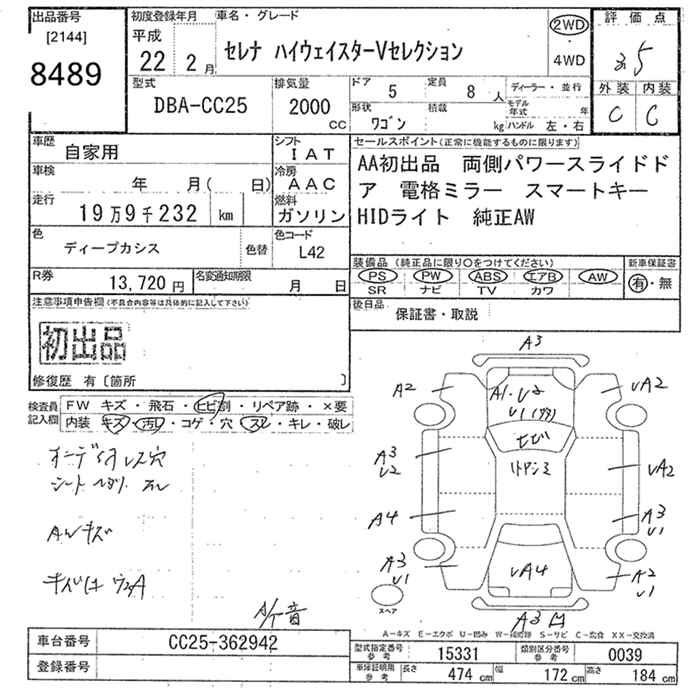 出品番号 初度登録年月 車名・グレード 評価点
[2144] 平成 セレナ ハイウェイスターVセレクション 2WD
8489 22年 2月 ・4WD
型式 排気量 ドア 5 定員 8人 ディーラー・並行 外装 内装
DBA-CC25 2000cc 形状 ワゴン 積載 kg モデル年式 年 ハンドル 左・右 C C
車歴 自家用 シフト IAT セールスポイント(正常に機能するものに限ります)
車検 年 月( 日) 冷房 AAC AA初出品 両側パワースライドド
走行 19万9千232 km 燃料 ガソリン ア 電格ミラー スマートキー
HIDライト 純正AW
色 ディープカシス 色替 色コード L42
装備品(純正品に限り○をつけてください) 新車保証書
R券 13,720円 名変通知期限 月 日 PS PW ABS エアB AW 有・無
SR ナビ TV カワ
注意事項申告欄(不具合内容等は具体的に記入して下さい) 後日品 保証書・取説
初出品
修復歴 有〔箇所 〕
検査員記入欄 FW キズ・飛石・ヒビ割・リペア跡・×要
内装 キズ・汚レ・コゲ・穴・スレ・キレ・破レ
A3
A2 A1・U2 UA2
U1
ヒビ
A3 U2 UA2
A4 A3 U1
AWキズ
A3 U1 UA4 A2 U1
スペア
A3
A-キズ E-エクボ U-凹み W-補修跡 S-サビ C-腐食 XX-交換済
車台番号 CC25-362942 型式指定番号 参考 15331 類別区分番号 参考 0039
登録番号 車庫証明用 参考 長さ 474 cm 幅 172 cm 高さ 184 cm